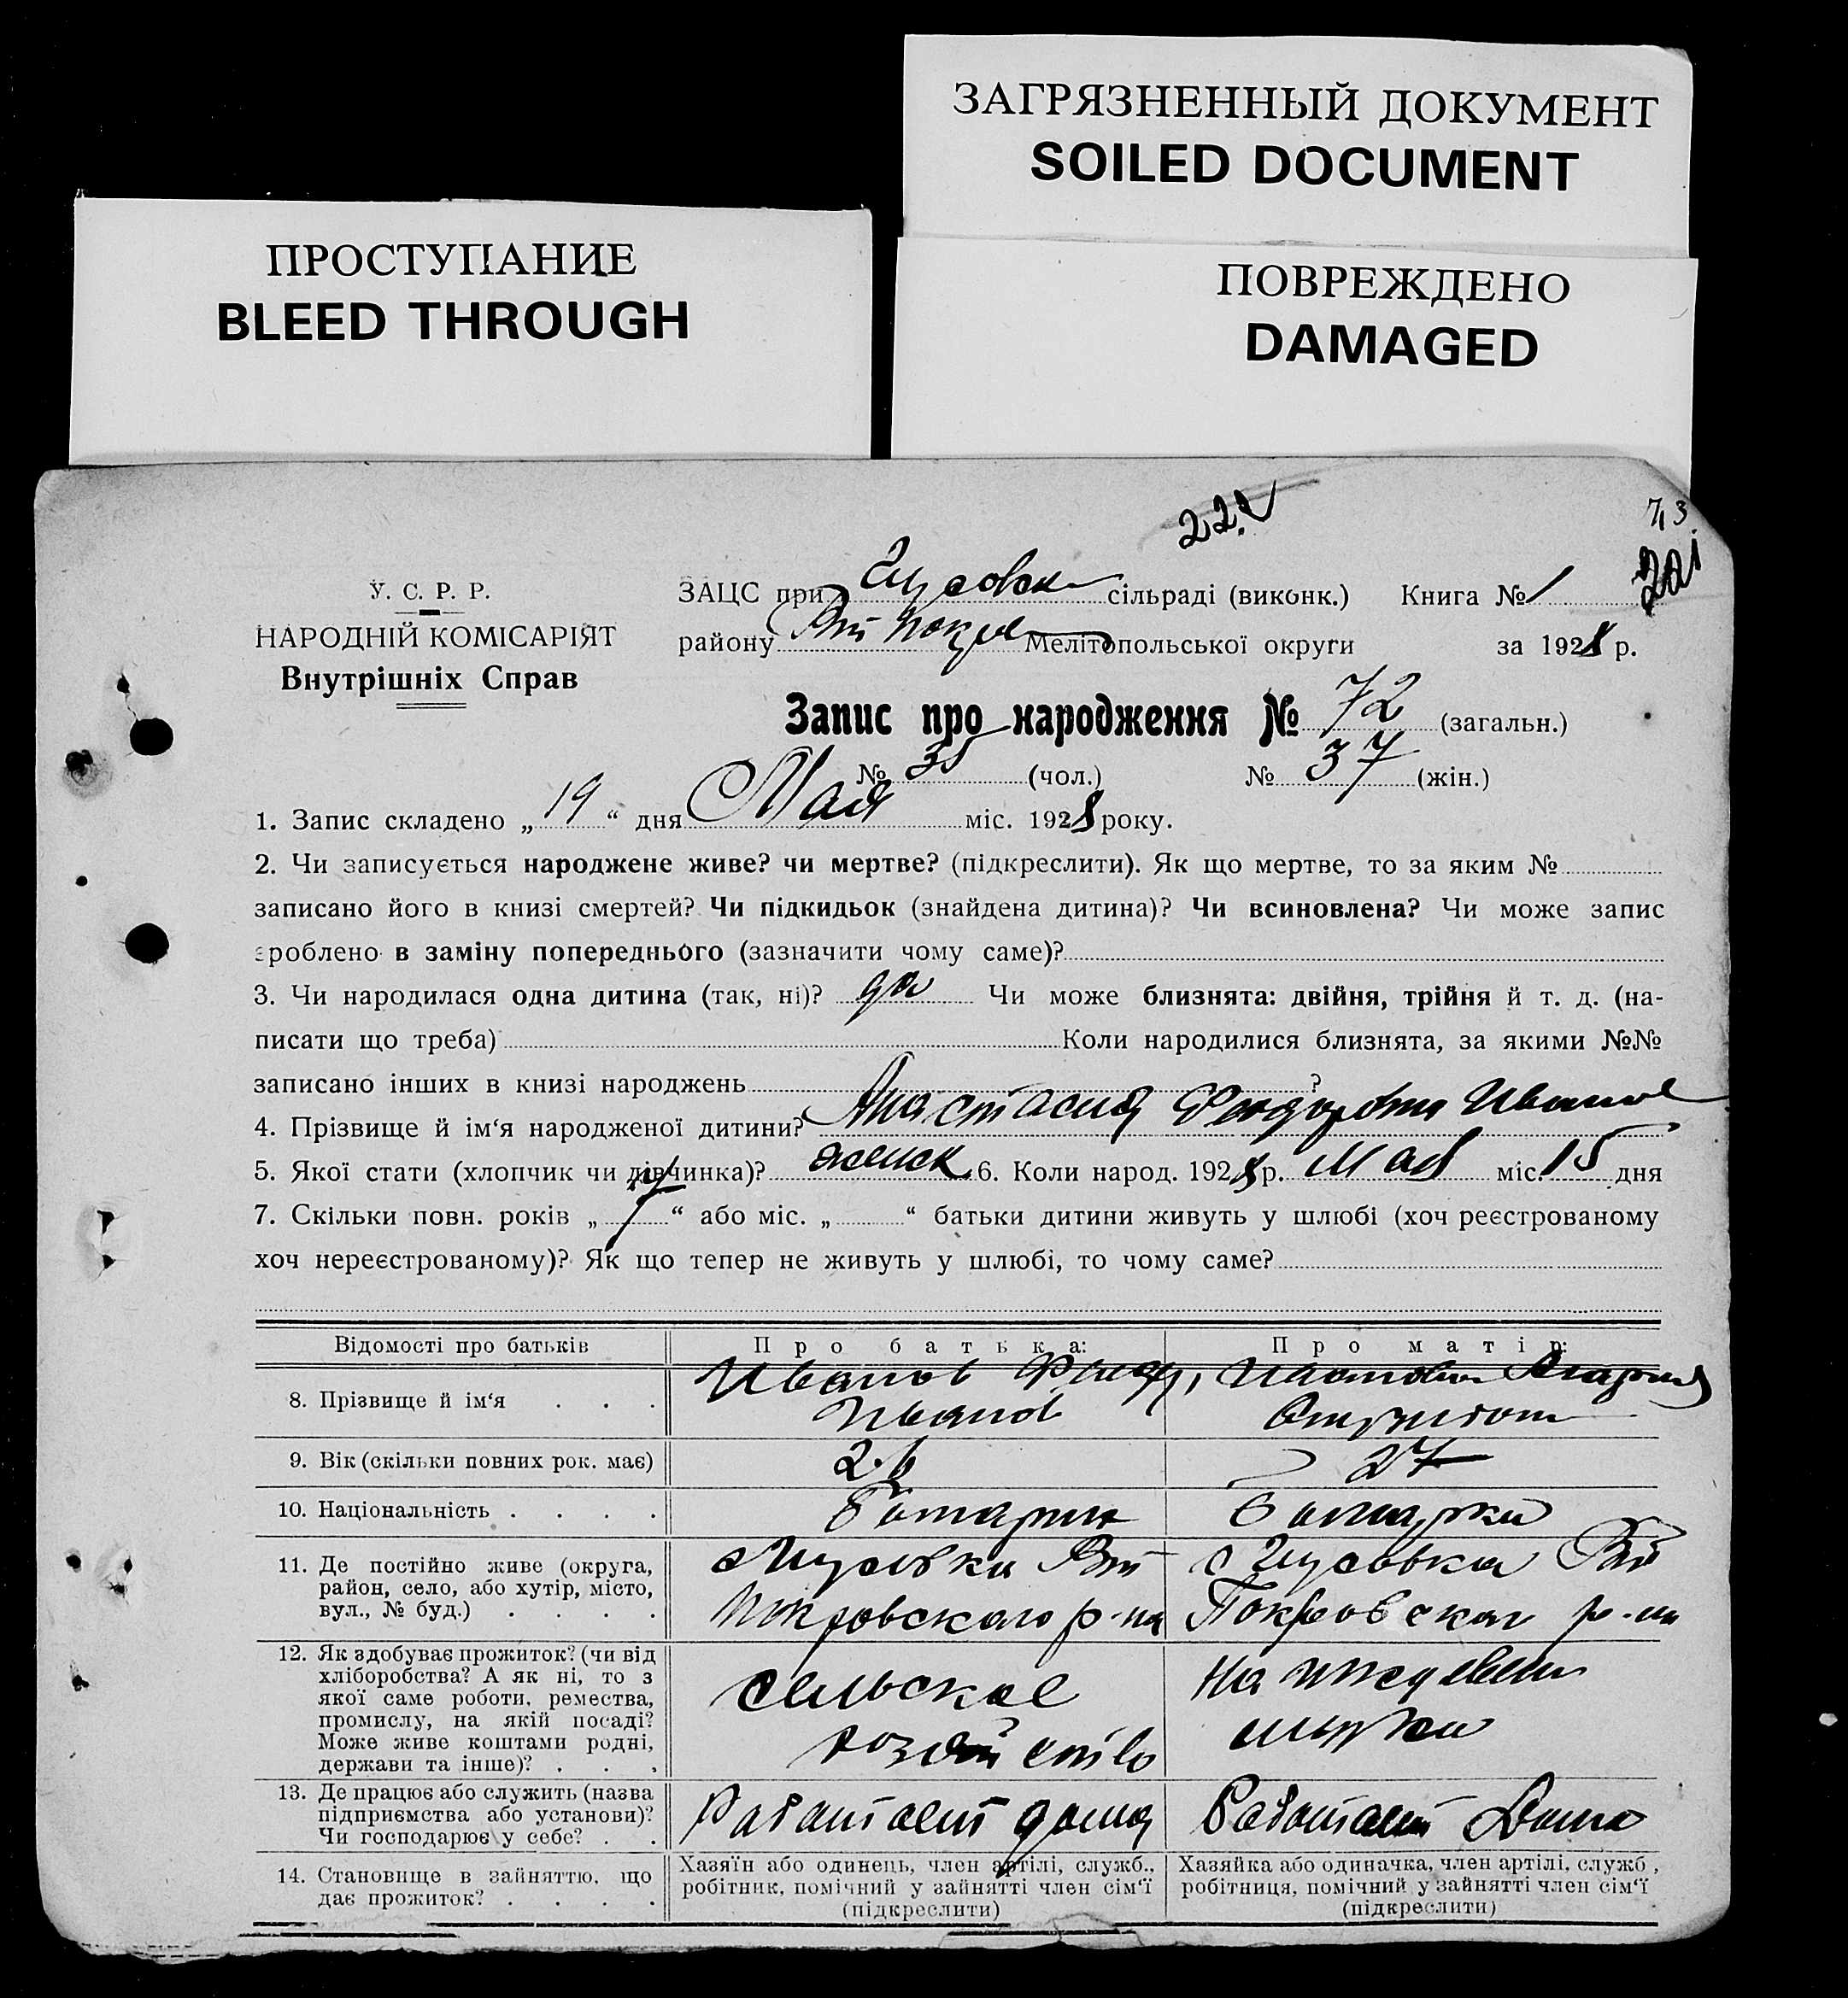 ЗАГРЯЗНЕННЫЙ ДОКУМЕНТ
SOILED DOCUMENT
ПРОСТУПАНИЕ
BLEED THROUGH
ПОВРЕЖДЕНО
DAMAGED
73
221
У. С. Р. Р.
НАРОДНІЙ КОМІСАРІЯТ
Внутрішніх Справ
ЗАЦС при сільраді (виконк.) Книга № 1
району Мелітопольської округи за 1928 р.
Запис про народження № 72 (загальн.)
№ 35 (чол.) № 37 (жін.)
1. Запис складено „ 19 “ дня Мая міс. 1928 року.
2. Чи записується народжене живе? чи мертве? (підкреслити). Як що мертве, то за яким №
записано його в книзі смертей? Чи підкидьок (знайдена дитина)? Чи всиновлена? Чи може запис
зроблено в заміну попереднього (зазначити чому саме)?
3. Чи народилася одна дитина (так, ні)? да Чи може близнята: двійня, трійня й т. д. (на-
писати що треба) Коли народилися близнята, за якими №№
записано інших в книзі народжень ?
4. Прізвище й ім‘я народженої дитини? Анастасия
5. Якої стати (хлопчик чи дівчинка)? женск. 6. Коли народ. 1928 р. Мая міс. 15 дня
7. Скільки повн. років „ “ або міс. „ “ батьки дитини живуть у шлюбі (хоч реєстрованому
хоч нереєстрованому)? Як що тепер не живуть у шлюбі, то чому саме?
Відомості про батьків Про батька: Про матір:
8. Прізвище й ім‘я . . . Иванов
Иванов
9. Вік (скільки повних рок. має) 26 27
10. Національність . . . . Болгарин Болгарка
11. Де постійно живе (округа,
район, село, або хутір, місто,
вул., № буд.) . . . .
Покровского р-на
Покровская р-на
12. Як здобуває прожиток? (чи від
хліборобства? А як ні, то з
якої саме роботи, ремества,
промислу, на якій посаді?
Може живе коштами родні,
держави та інше)? . . .
сельское
хозяйство
на иждевени
мужа
13. Де працює або служить (назва
підприємства або установи)?
Чи господарює у себе? . .
Работает дома
Работает Дома
14. Становище в зайняттю, що
дає прожиток? . . . .
Хазяїн або одинець, член артілі, служб.,
робітник, помічний у зайнятті член сім‘ї
(підкреслити)
Хазяйка або одиначка, член артілі, служб ,
робітниця, помічний у зайнятті член сім‘ї
(підкреслити)